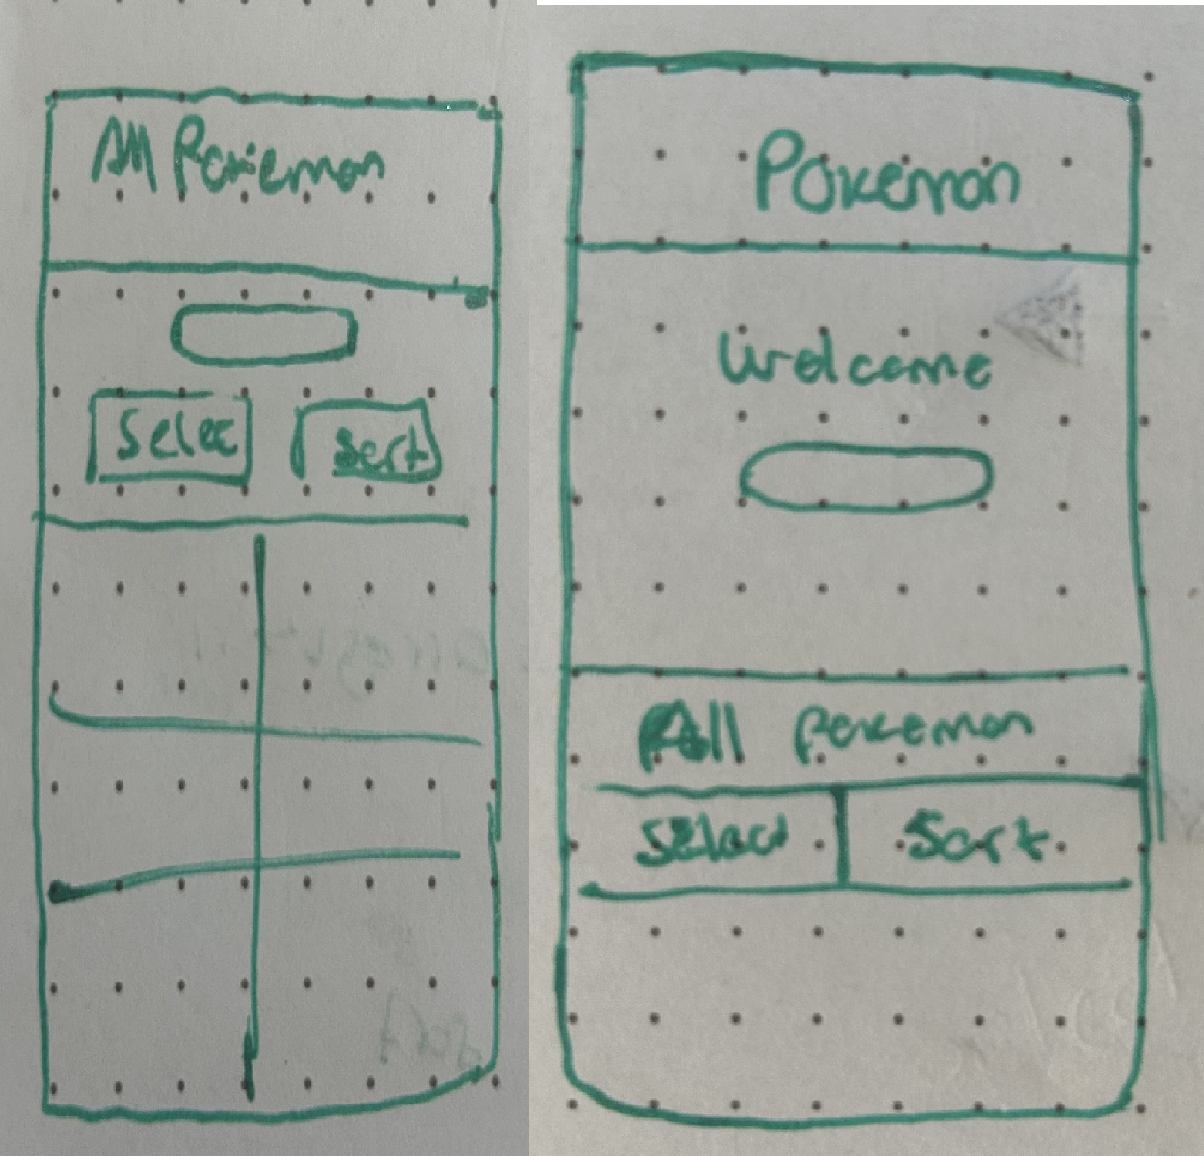 All Pokemon
Selec
Sort
Pokemon
Welcome
All pokemon
Select
Sort